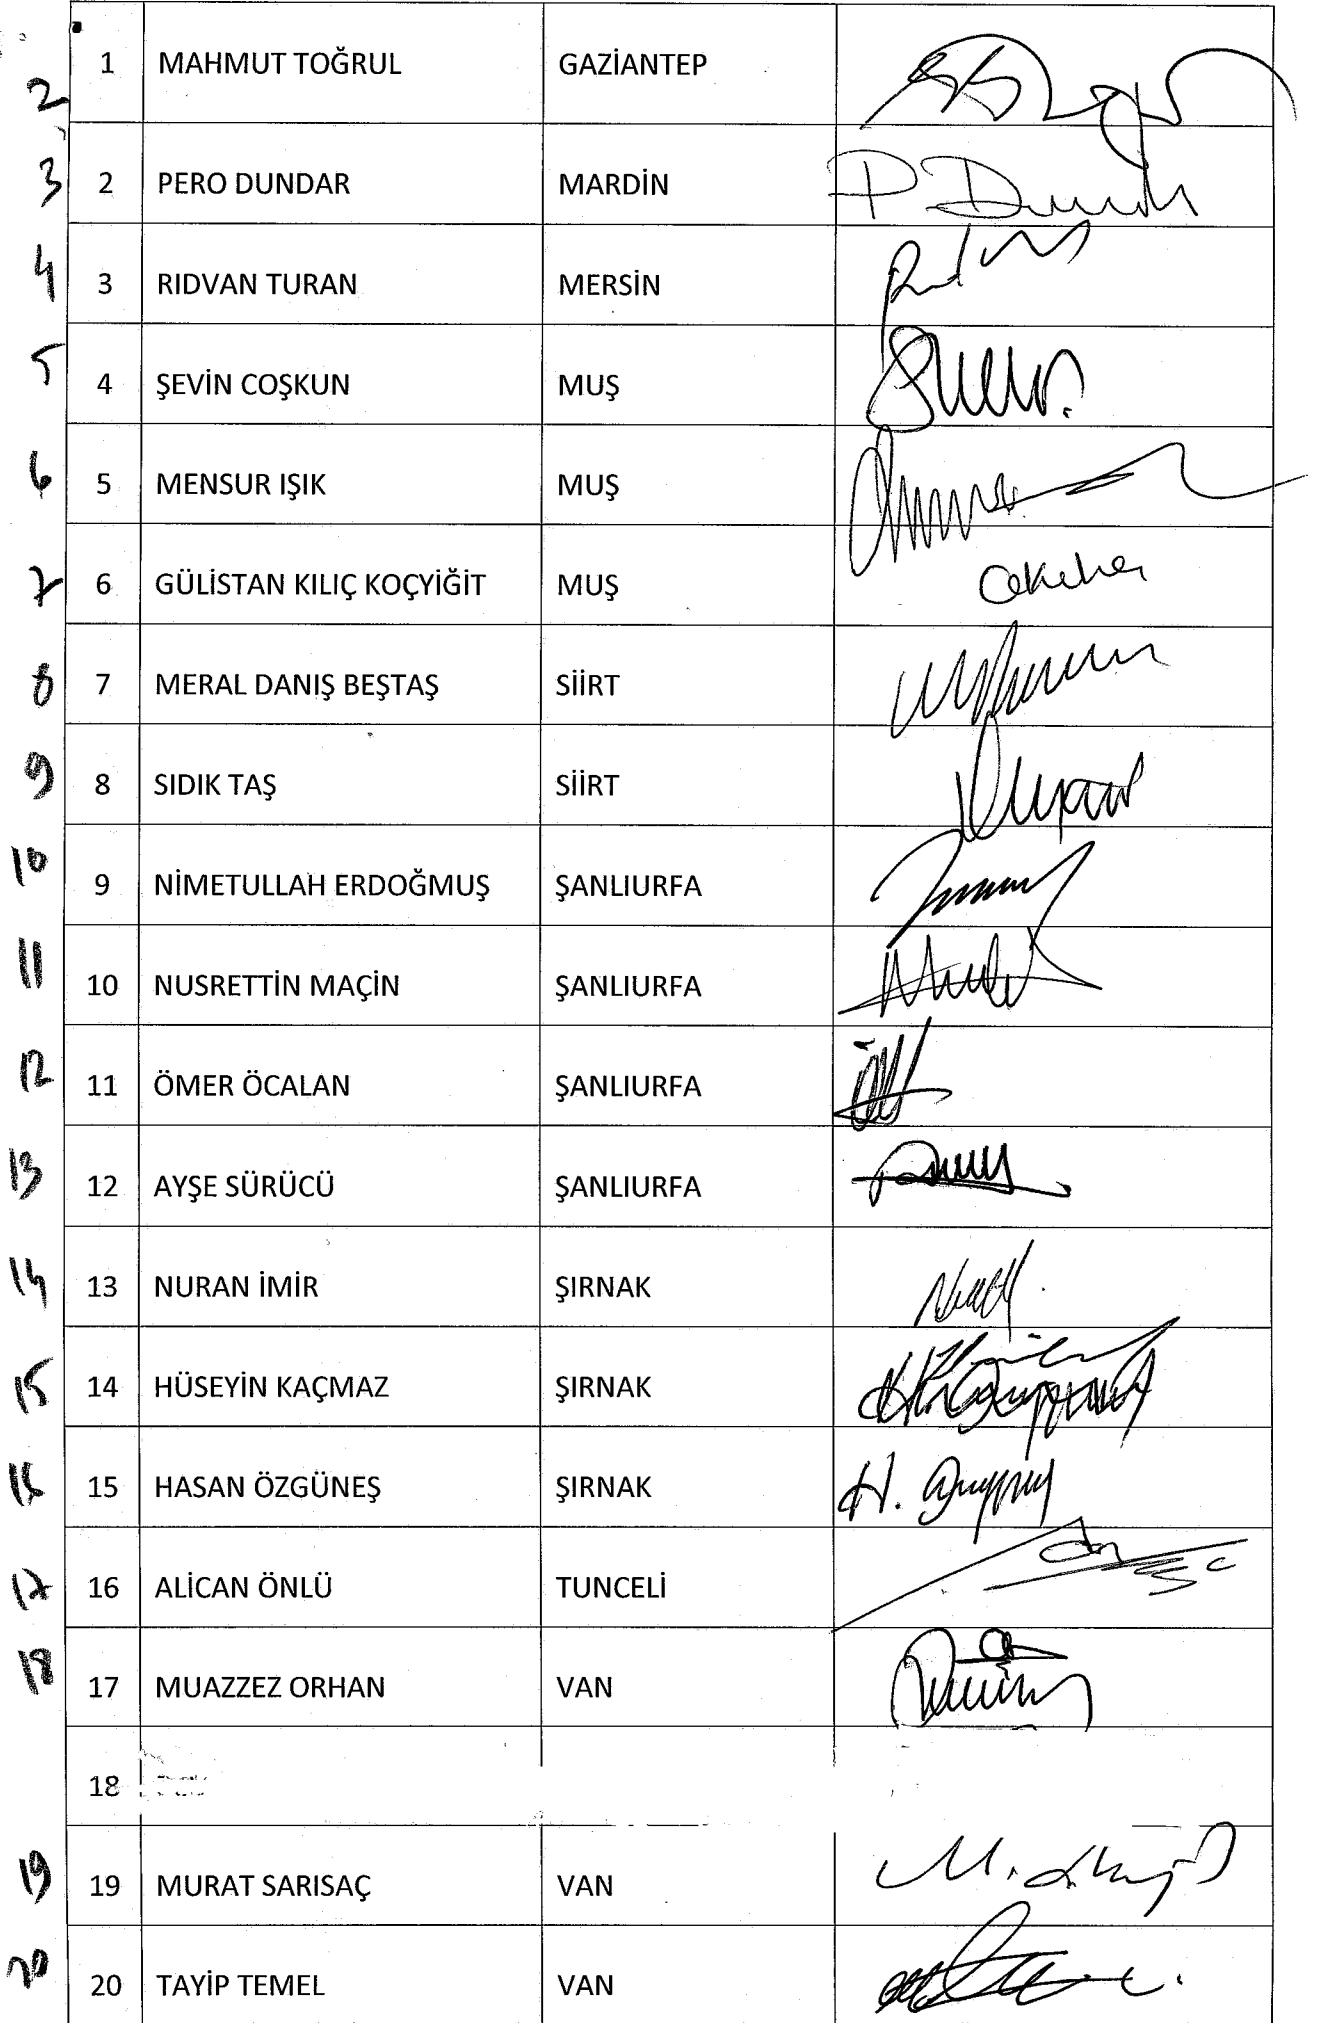 2 1 MAHMUT TOĞRUL GAZİANTEP
3 2 PERO DUNDAR MARDİN P. Dundar
4 3 RIDVAN TURAN MERSİN
5 4 ŞEVİN COŞKUN MUŞ
6 5 MENSUR IŞIK MUŞ
7 6 GÜLİSTAN KILIÇ KOÇYİĞİT MUŞ
8 7 MERAL DANIŞ BEŞTAŞ SİİRT
9 8 SIDIK TAŞ SİİRT
10 9 NİMETULLAH ERDOĞMUŞ ŞANLIURFA
11 10 NUSRETTİN MAÇİN ŞANLIURFA
12 11 ÖMER ÖCALAN ŞANLIURFA
13 12 AYŞE SÜRÜCÜ ŞANLIURFA
14 13 NURAN İMİR ŞIRNAK
15 14 HÜSEYİN KAÇMAZ ŞIRNAK
16 15 HASAN ÖZGÜNEŞ ŞIRNAK H.
17 16 ALİCAN ÖNLÜ TUNCELİ
18 17 MUAZZEZ ORHAN VAN
18
19 19 MURAT SARISAÇ VAN M.
20 20 TAYİP TEMEL VAN